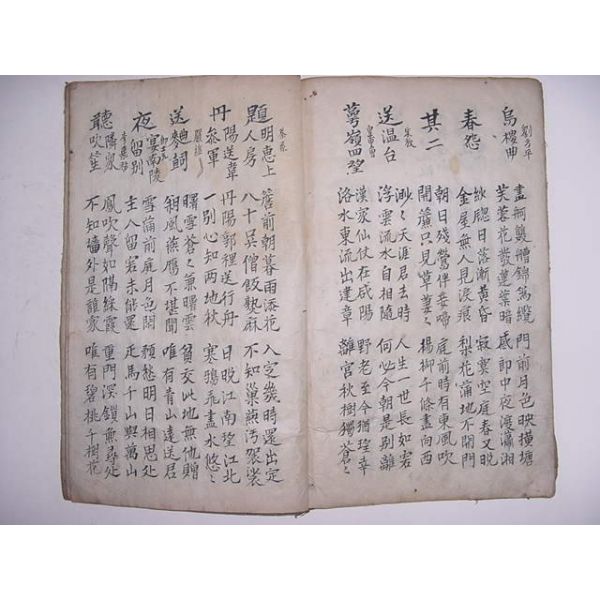 烏棲曲 劉方平
畫舸雙艚錦為纜 門前月色映橫塘
芙蓉花發蓮葉暗 感郎中夜渡瀟湘
春怨
紗牕日落漸黃昏 寂寞空庭春又晚
金屋無人見淚痕 梨花滿地不開門
其二
朝日殘鶯伴妾啼 庭前時有東風吹
開簾只見草萋〻 楊柳千條盡向西
送溫台 朱放
渺〻天涯君去時 人生一世長如客
浮雲流水自相隨 何必今朝是別離
萼嶺四望 皇甫曾
漢家仙仗在咸陽 野老至今猶望幸
洛水東流出建章 離宮秋樹獨蒼〻
題明惠上人房 秦系
簷前朝暮雨添花 入定幾時還出定
八十吳僧飯熟麻 不知巢燕汚袈裟
丹陽送韋參軍 嚴維
丹陽郭裡送行舟 日晚江南望江北
一別心知兩地秋 寒鴉飛盡水悠〻
送麴司
曙雪蒼〻兼曙雲 貧交此地無他贈
朔風燕鴈不堪聞 唯有青山遠送君
夜宴南陵留別
雪滿前庭月色閑 預愁明日相思處
主人留客未能還 疋馬千山與萬山
聽隣家吹笙
鳳吹聲如隔綵霞 重門深鎖無尋處
不知墻外是誰家 唯有碧桃千樹花